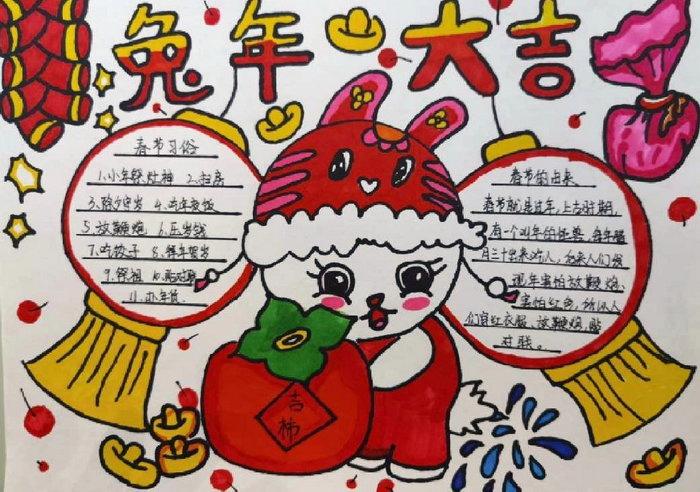 兔年大吉
春节习俗
1.小年祭灶神 2.扫房
3.除夕守岁 4.吃年夜饭
5.放鞭炮 6.压岁钱
7.吃饺子 8.拜年贺岁
9.祭祖 10.贴对联
11.办年货
春节的由来
春节就是过年，上古时期，
有一个叫年的怪兽，每年腊
月三十出来吃人，后来人们发
现年害怕放鞭炮，
害怕红色，所以人
们穿红衣服、放鞭炮、贴
对联。
吉
柿